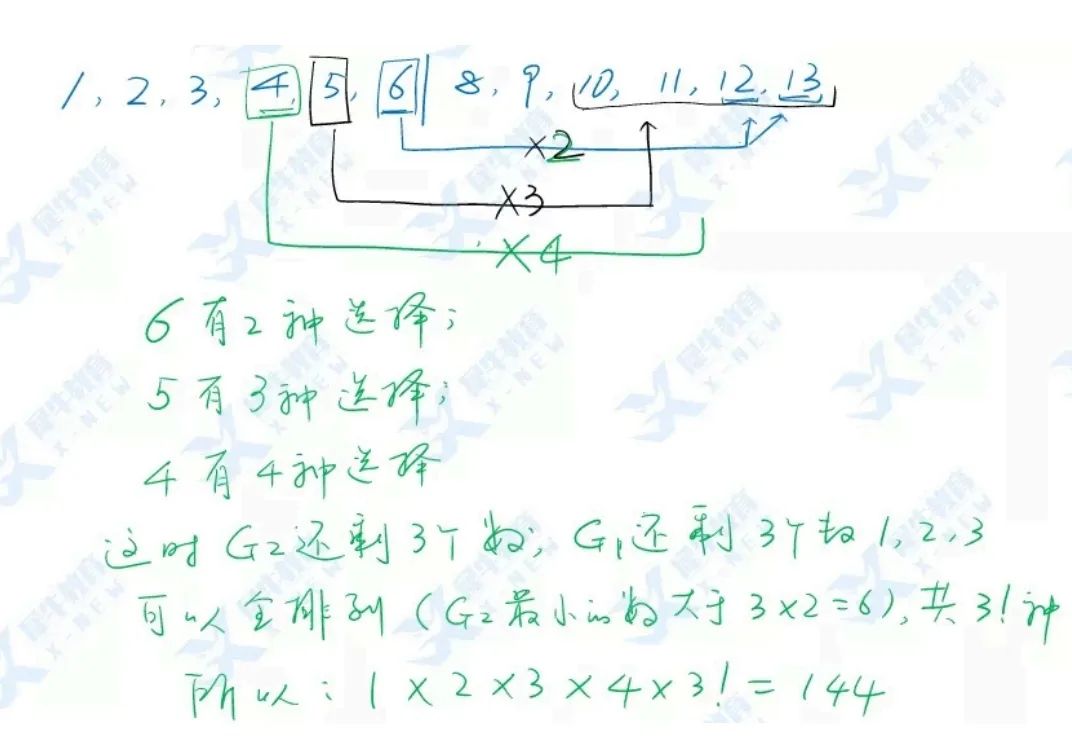 1, 2, 3, 4, 5, 6 8, 9, 10, 11, 12, 13
×2
×3
×4
6有2种选择;
5有3种选择;
4有4种选择
这时G2还剩3个数, G1还剩3个数1,2,3
可以全排列(G2最小的数大于3×2=6),共3!种
所以:1×2×3×4×3!=144
犀牛教育
X-NEW